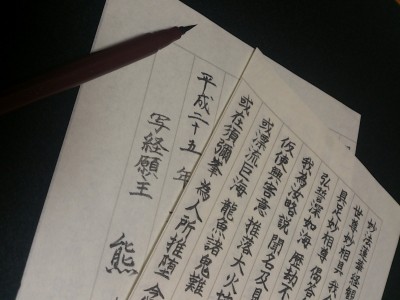 妙法蓮華経観
世尊妙相具 我
具足妙相尊 偈答
弘誓深如海 歴劫不
我為汝略説 聞名及見
仮使興害意 推落大火
或漂流巨海 龍魚諸鬼難
或在須彌峯 為人所推堕 念
平成二十五年
写経願主 熊